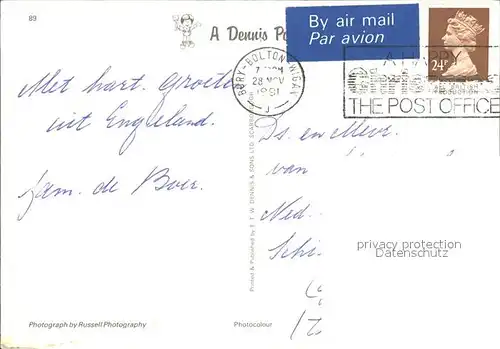 89
A Dennis Po
By air mail
Par avion
BURY-BOLTON-WIGAN
28 NOV
1991
J
A HAPPY
THE POST OFFICE
24P
Met hart. Groeten
uit Engeland.
fam. de Boer.
Ds. en Mevr.
van
Ned.
Schi
Printed & Published by E. T. W. DENNIS & SONS LTD. SCARBO
privacy protection
Dokumentals.com
Photograph by Russell Photography
Photocolour